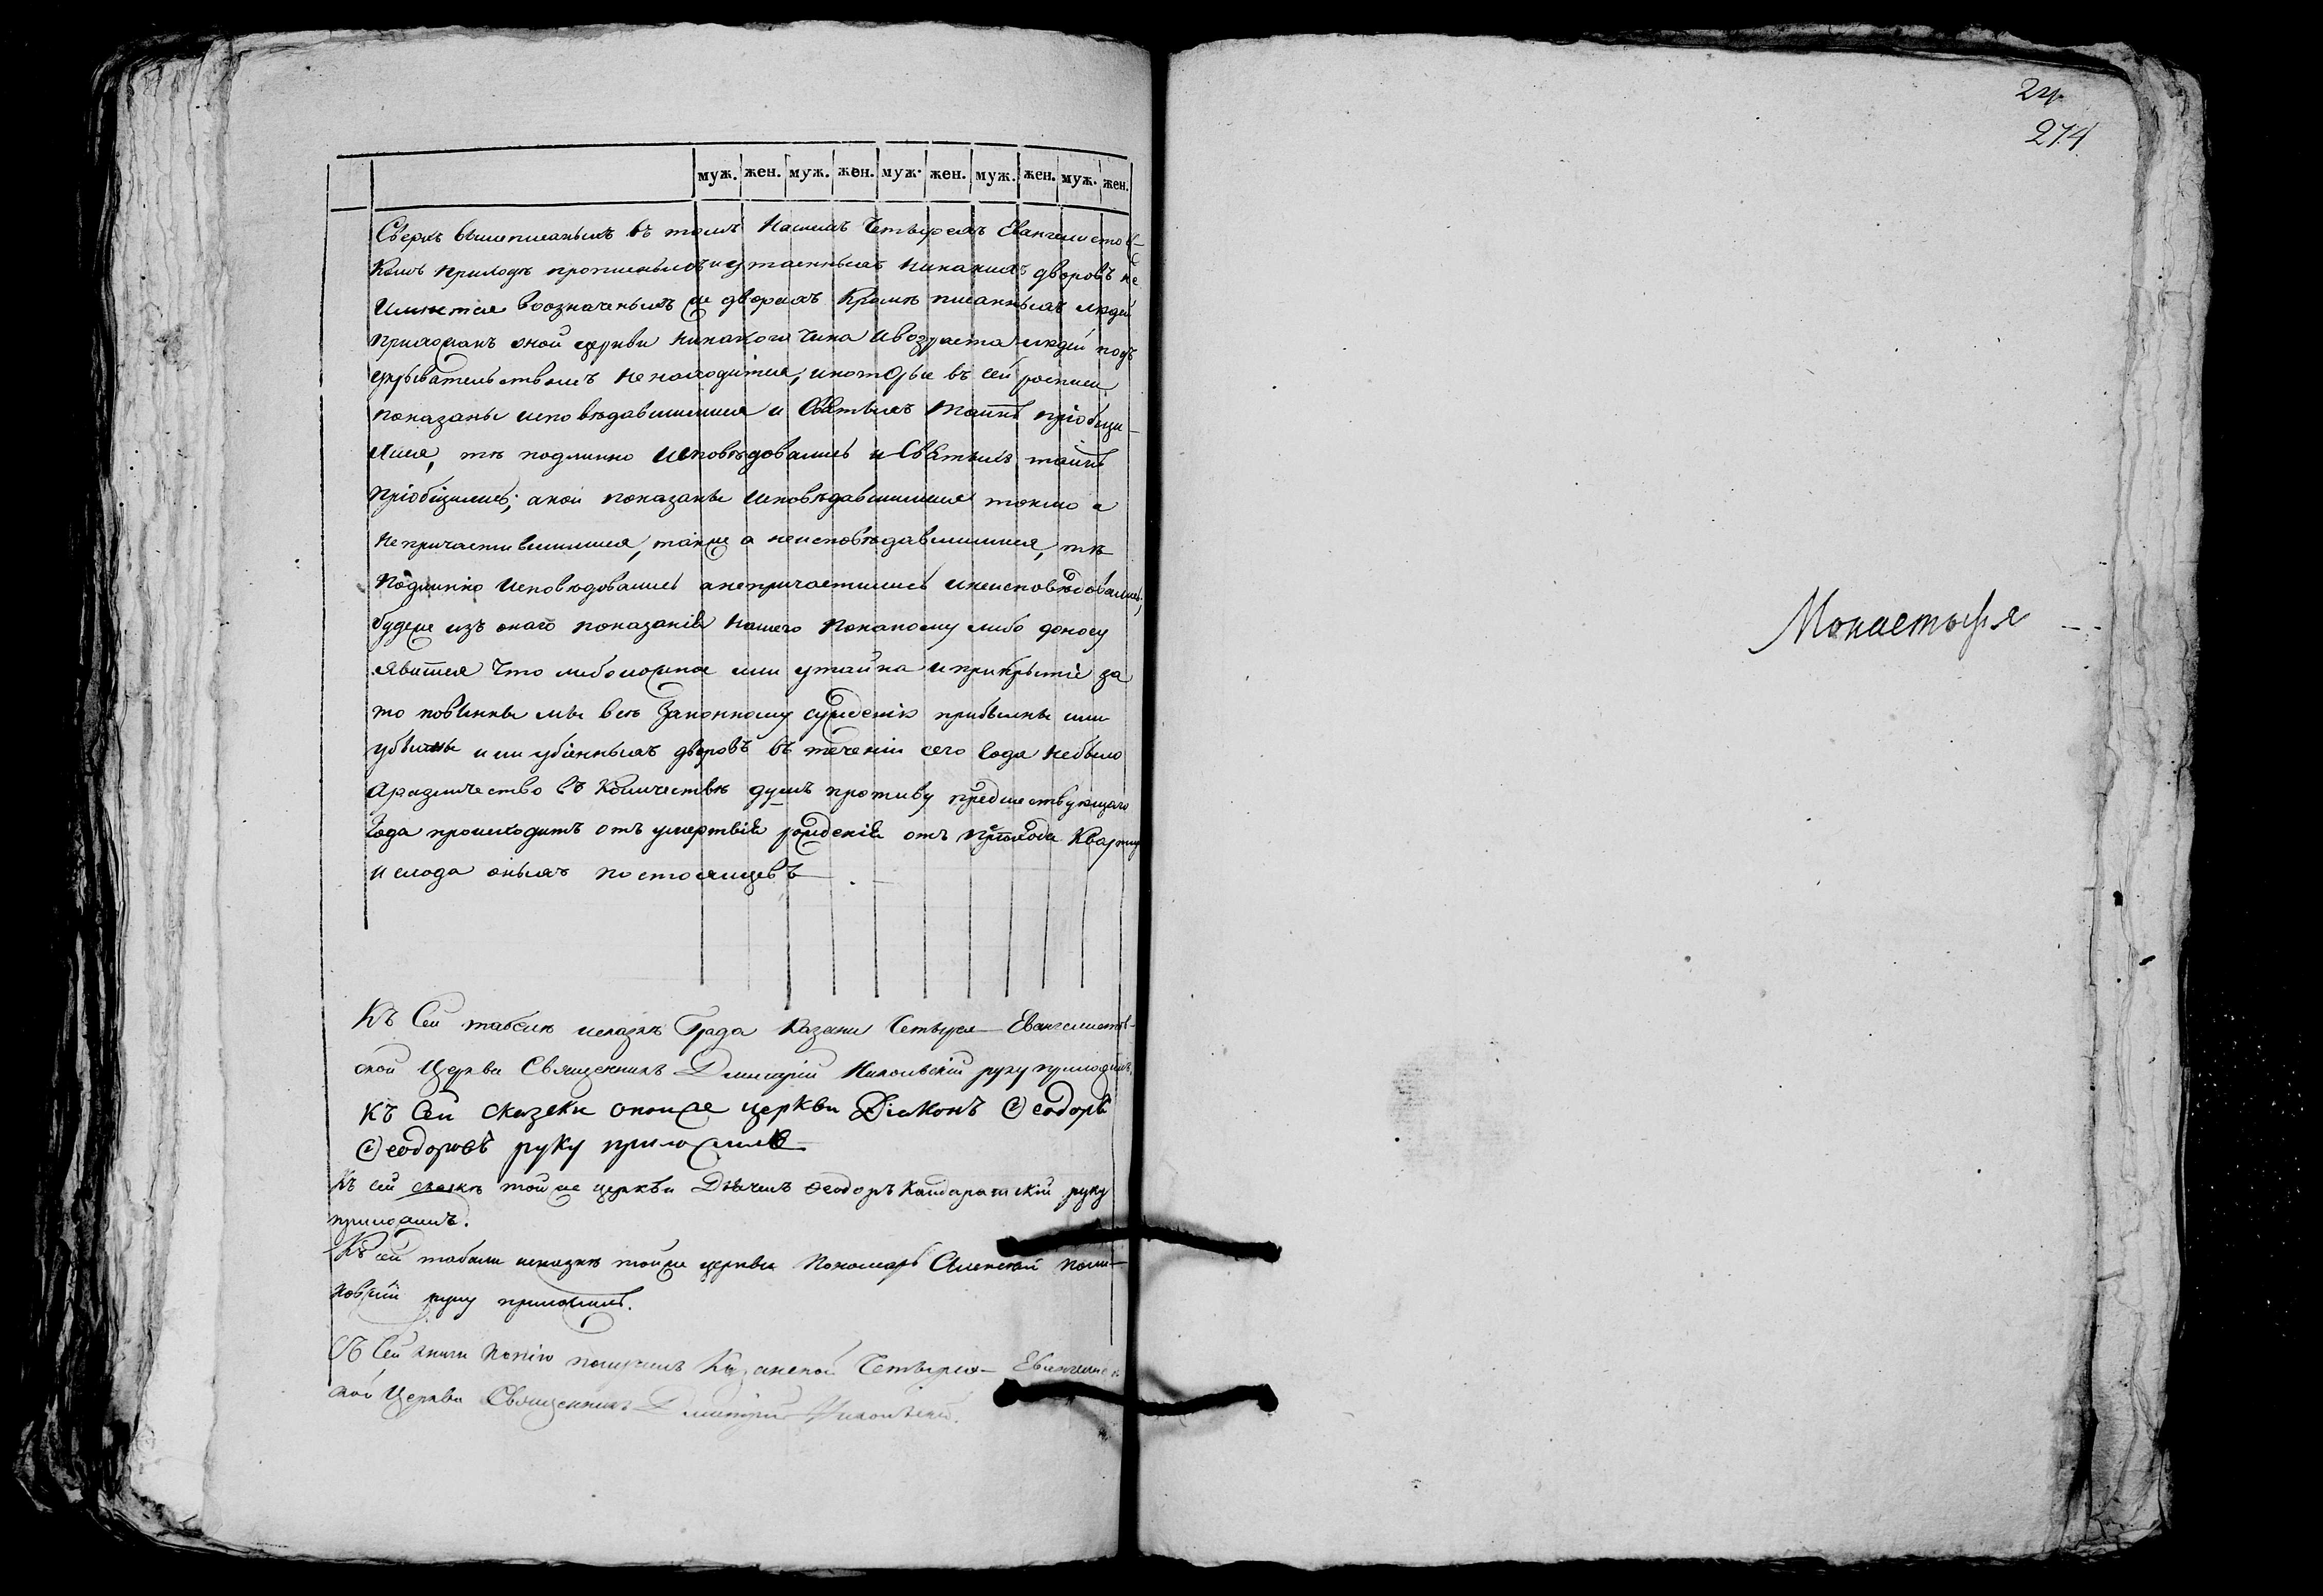 муж. жен. муж. жен. муж. жен. муж. жен. муж. жен.
Сверхъ вышеписанныхъ въ томъ Нашемъ Четырехъ Евангелистов-
комъ приходѣ прописныхъ и утаенныхъ никакихъ дворовъ не
имѣется воозначеныхъ же дворахъ кромѣ писанныхъ людей
прихожанъ оной церкви никакого чина и возраста людей подъ
укрывательствомъ не находится, и которые въ сей росписи
показаны исповѣдавшимися и Святыхъ таинъ пріобщи-
лися, тѣ подлинно исповѣдовались и Святыхъ таинъ
пріобщились; а кои показаны исповѣдавшимися токмо а
не причастившимися, также а неисповѣдавшимися, тѣ
подлинно исповѣдовались а непричастились и неисповѣдовались;
будеже изъ онаго показанія нашего по какому либо доносу
явится что либо ложное или утайка и прикрытіе за
то повинны мы всѣ законному сужденію прибылыхъ или
убылыхъ дворовъ въ теченіи сего года небыло
а различество въ количествѣ душъ противу предшествующаго
года происходитъ отъ умертвій рожденій отъ прихода
и схода оныхъ постояльцевъ
Къ Сей табели исказкѣ Града Казани Четырехъ-Евангелистов-
ской Церкви Священникъ Димитрій Никольскій руку приложилъ.
къ Сей сказки оной же церкви Діаконъ Ѳеодоръ
Ѳеодоровъ руку приложилъ
Къ сей сказкѣ той же церкви Дьячекъ Ѳеодоръ руку
приложилъ.
Къ сей табели исказкѣ тойже церкви Пономарь Алексей
руку приложилъ.
Съ Сей книги копію получилъ Казанской Четырехъ-Евангелис
ской Церкви Священникъ Димитрій Никольскій.
274
Монастыря